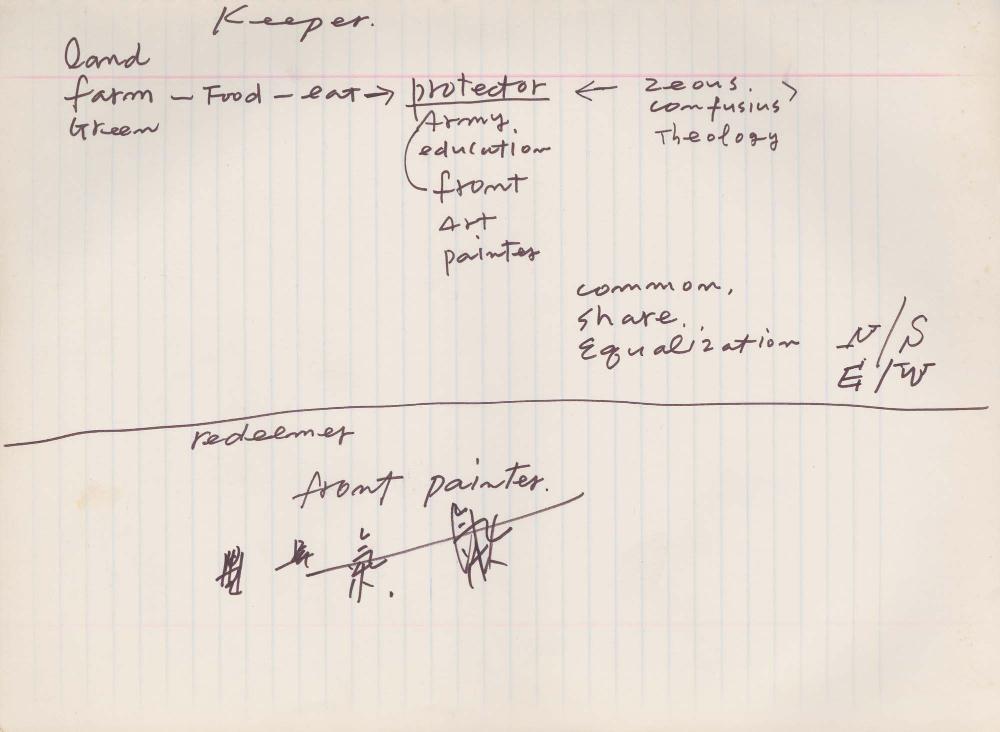 Keeper.
land
farm – Food – eat → protector ← zeous.
Green
Army.
confusius
education
Theology
front
Art
painter
common,
share.
Equalization
N/S
E/W
redeemer
front painter.